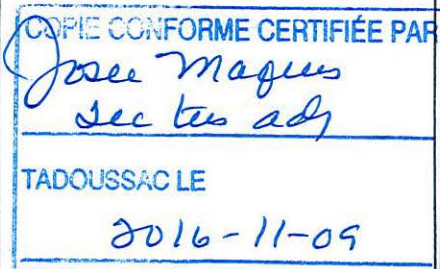 COPIE CONFORME CERTIFIÉE PAR
Josee Maques
sec tres adj
TADOUSSAC LE
2016-11-09